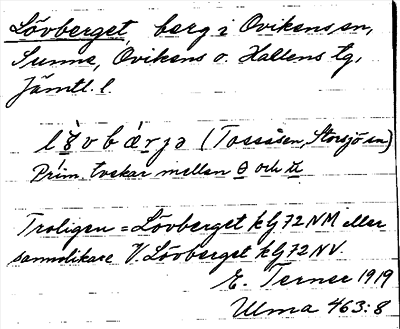 Lövberget, berg i Ovikens sn,
Sunne, Ovikens o. Hallens tg,
Jämtl. l.
(Tossåsen, Storsjö sn)
Prim. tvekar mellan och
Troligen = Lövberget kg 72 NM eller
sannolikare V. Lövberget kg 72 NV.
E. Terner 1919
Ulma 463:8